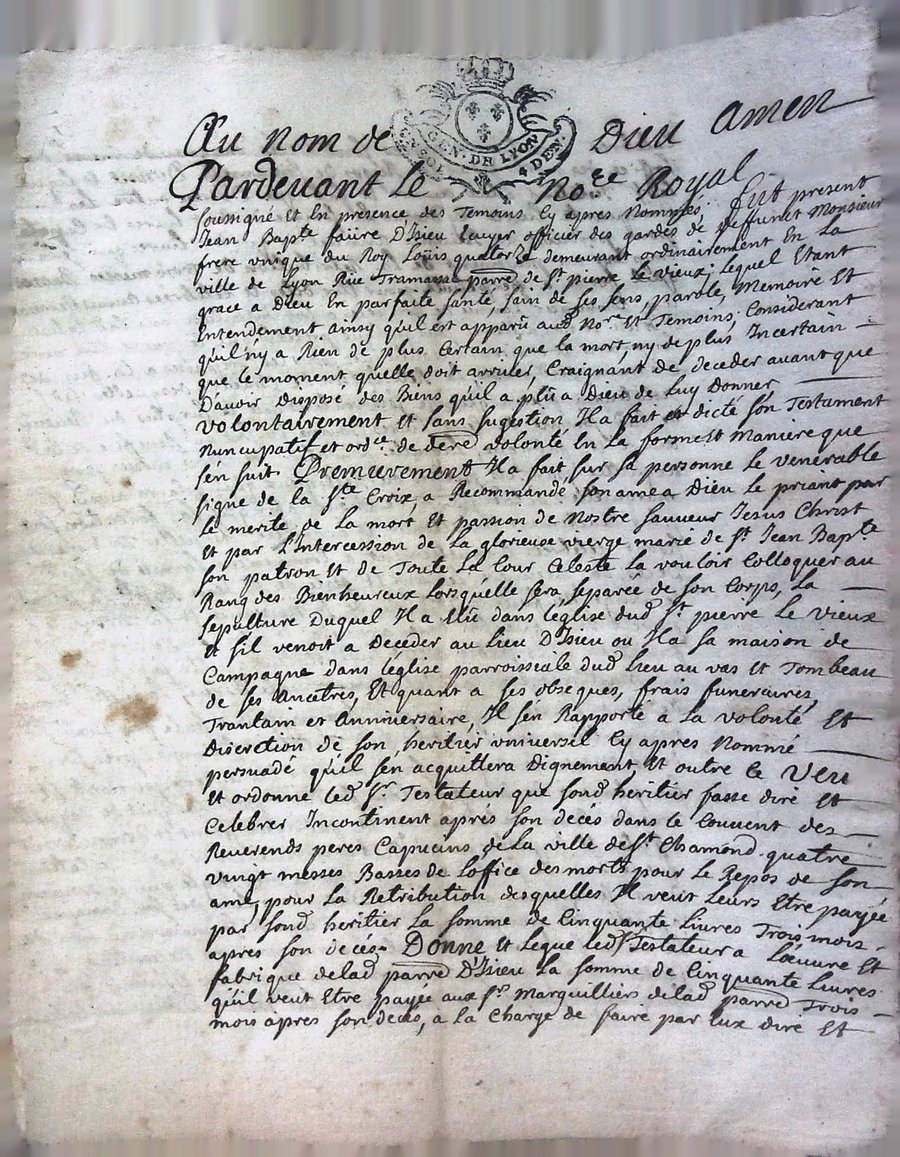 Au nom de Dieu amen
GEN. DE LYON
4 DEN.
Pardevant Le No.re Royal
soussigné Et En presence des Temoins Cy apres Nommés, fut present
Jean Bapte faure D'Isieu Ecuyer officier des gardes de deffunct Monsieur
frere unique du Roy Loüis quatorze demeurant ordinairement En La
ville de Lyon Rüe Tramassa parre de St pierre Le vieux; Lequel Etant
grace a Dieu En parfaite santé, sain de ses sens, parole, Memoire Et
Entendement ainsy qu'il est apparü aud No.re Et Temoins; Considerant
qu'il n'y a Rien de plus Certain que la mort, ny de plus Incertain
que le moment quelle doit arriver, Craignant de deceder avant que
D'avoir disposé des Biens qu'il a plû a Dieu de Luy Donner
volontairement Et sans sugestion, Ha fait et dicté son Testament
Nuncupatif et ord.ce de dere volonté En La forme Et Maniere que
s'en suit. Premierement Ha fait sur sa personne Le venerable
signe de la Ste Croix, a Recommandé son ame a Dieu Le priant par
Le merite de La mort Et passion de Nostre sauveur Jesus Christ
Et par L'Intercession de La glorieuse vierge marie de St Jean Bapte
son patron Et de Toute La Cour Celeste La vouloir Colloquer au
Rang des Bienheureux Lorsqu'elle sera separée de son Corps, La
sepulture Duquel Il a Elû dans L'église dud St pierre Le vieux
Et s'il venoit a Deceder au Lieu D'Isieu ou Il a sa maison de
Campagne dans L'église parroissiale dud Lieu au vas Et Tombeau
de ses ancetres, Et quant a ses obseques, frais funeraires,
Trantain et Anniversaire, Il s'en Rapporte a La volonté Et
Discretion de son heritier universel Cy apres Nommé
persuadé qu'il s'en acquittera Dignement, Et outre Ce Veu
Et ordonne led Sr Testateur que sond heritier fasse dire Et
Celebrer Incontinent aprés son decés dans Le Couvent des
Reverends peres Capucins de La ville de St Chamond quatre
vingt messes Basses de L'office des morts pour Le Repos de son
ame, pour La Retribution desquelles Il veut Leurs Etre payée
par sond heritier La somme de Cinquante Livres Trois mois
apres son decés. Donne Et Legue led Sr Testateur a L'œuvre Et
fabrique de lad parre D'Isieu La somme de Cinquante Livres
qu'il veut Etre payée aux Srs Marguilliers de lad parre Trois
mois apres son decés, a La Charge de faire par Eux dire Et